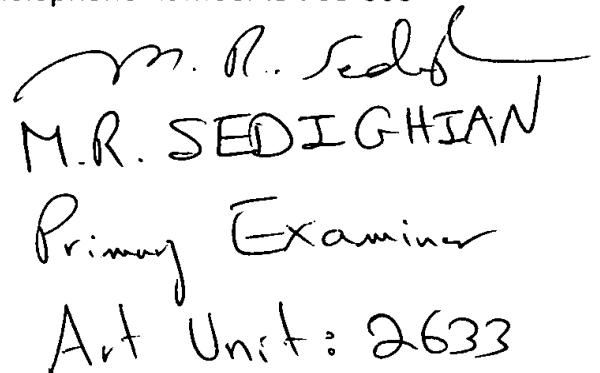 M. R. Sedigh
M.R. SEDIGHIAN
Primary Examiner
Art Unit: 2633